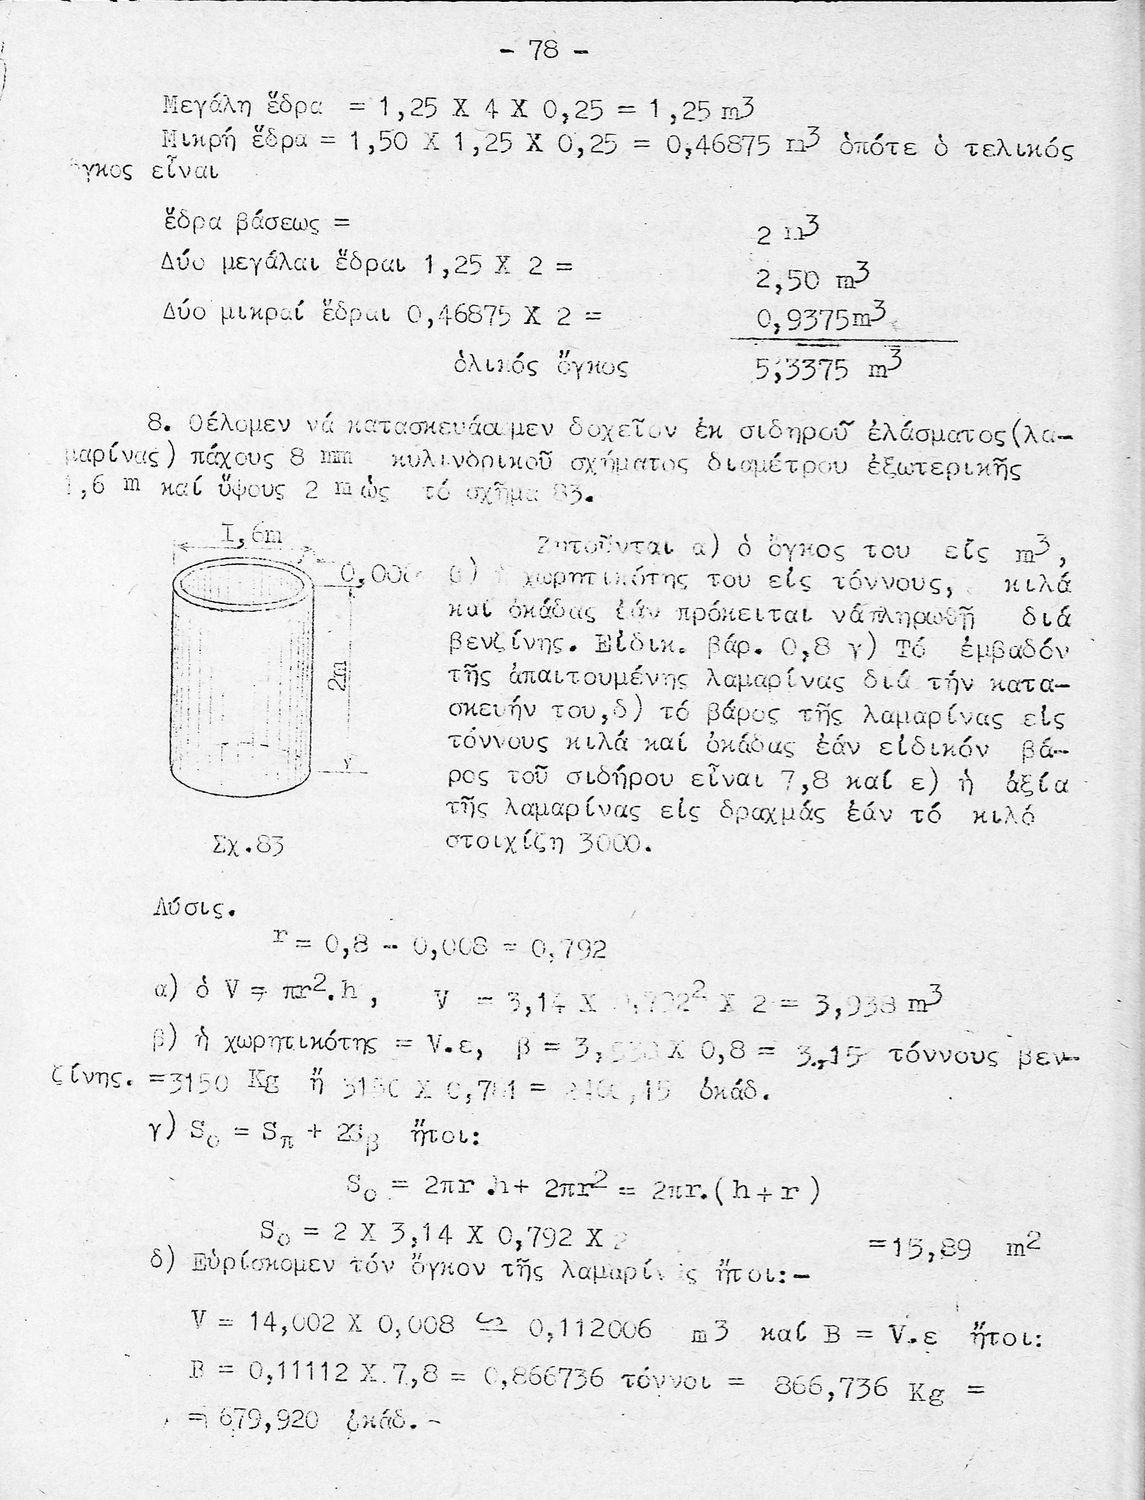 - 78 -
Μεγάλη ἕδρα = 1,25 X 4 X 0,25 = 1,25 m3
Μικρή ἕδρα = 1,50 X 1,25 X 0,25 = 0,46875 m3 ὁπότε ὁ τελικός
ὄγκος εἶναι
ἕδρα βάσεως = 2 m3
Δύο μεγάλαι ἕδραι 1,25 X 2 = 2,50 m3
Δύο μικραί ἕδραι 0,46875 X 2 = 0,9375m3
ὁλικός ὄγκος 5,3375 m3
8. Θέλομεν νά κατασκευάσωμεν δοχεῖον ἐκ σιδηροῦ ἐλάσματος(λα-
μαρίνας) πάχους 8 mm κυλινδρικοῦ σχήματος διαμέτρου ἐξωτερικῆς
1,6 m καί ὕψους 2 m ὡς τό σχῆμα 83.
I,6m
2m
Ζητοῦνται α) ὁ ὄγκος του εἰς m3,
β) ἡ χωρητικότης του εἰς τόννους, κιλά
καί ὀκάδας ἐάν πρόκειται νά πληρωθῇ διά
βενζίνης. Εἰδικ. βάρ. 0,8 γ) Τό ἐμβαδόν
τῆς ἀπαιτουμένης λαμαρίνας διά τήν κατα-
σκευήν του, δ) τό βάρος τῆς λαμαρίνας εἰς
τόννους κιλά καί ὀκάδας ἐάν εἰδικόν βά-
ρος τοῦ σιδήρου εἶναι 7,8 καί ε) ἡ ἀξία
τῆς λαμαρίνας εἰς δραχμάς ἐάν τό κιλό
στοιχίζη 3000.
Σχ.83
Λύσις.
r = 0,8 - 0,008 = 0,792
α) ὁ V = πr2.h, V = 3,14 X 0,7922 X 2 = 3,938 m3
β) ἡ χωρητικότης = V.ε, β = 3,938 X 0,8 = 3,15 τόννους βεν-
ζίνης. =3150 Kg ἤ 3150 X = ὀκάδ.
γ) Sο = Sπ + 2Sβ ἤτοι:
Sο = 2πr.h+ 2πr2 = 2πr.(h+r)
Sο = 2 X 3,14 X 0,792 X =15,89 m2
δ) Εὑρίσκομεν τόν ὄγκον τῆς λαμαρίνας ἤτοι:-
V = 14,002 X 0,008 ≌ 0,112006 m3 καί B = V.ε ἤτοι:
B = 0,11112 X 7,8 = 0,866736 τόννοι = 866,736 Kg =
= 679,920 ὀκάδ.-